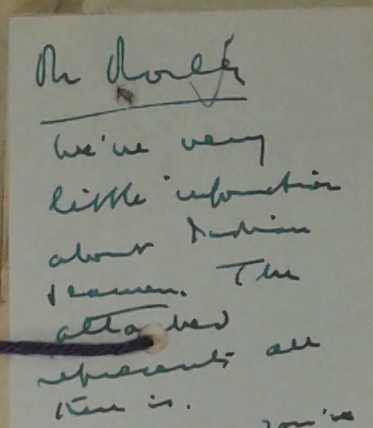 Mr
We've very
little information
about Indian
seamen. The
attached
represents all
there is.
You've